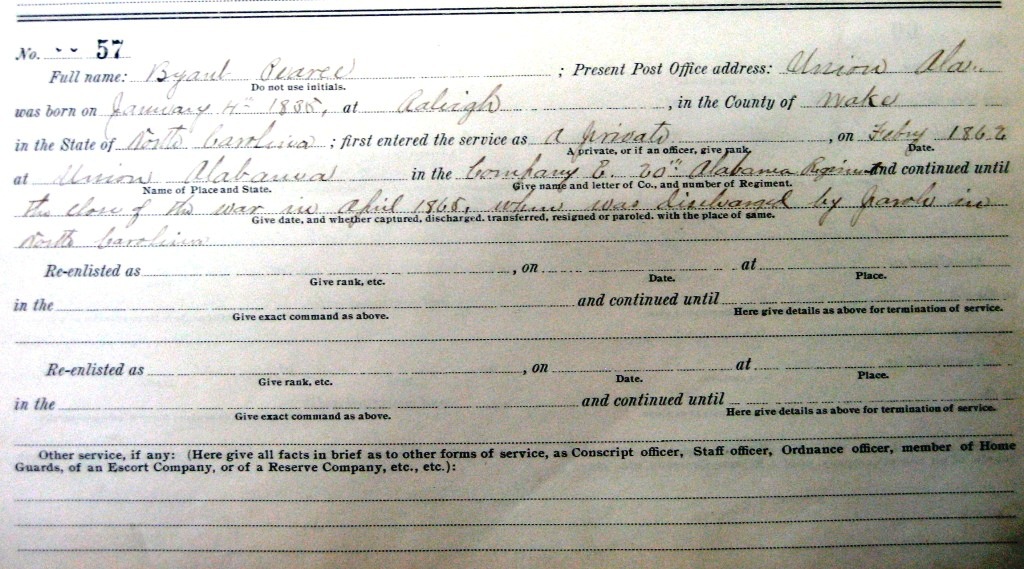 No. -- 57
Full name: Byant Pearce ; Present Post Office address: Union Ala.
Do not use initials.
was born on January 4th 1835, at Raleigh, in the County of Wake
in the State of North Carolina ; first entered the service as A private, on Febry 1862
A private, or if an officer, give rank. Date.
at Union Alabama in the Company E. 20th Alabama Regiment and continued until
Name of Place and State. Give name and letter of Co., and number of Regiment.
the close of the war in April 1865, when was discharged by parole in
Give date, and whether captured, discharged, transferred, resigned or paroled, with the place of same.
North Carolina
Re-enlisted as , on at
Give rank, etc. Date. Place.
in the and continued until
Give exact command as above. Here give details as above for termination of service.
Re-enlisted as , on at
Give rank, etc. Date. Place.
in the and continued until
Give exact command as above. Here give details as above for termination of service.
Other service, if any: (Here give all facts in brief as to other forms of service, as Conscript officer, Staff officer, Ordnance officer, member of Home
Guards, of an Escort Company, or of a Reserve Company, etc., etc.):